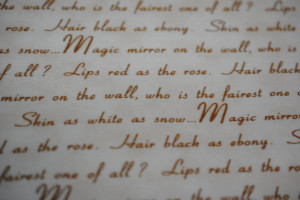 the wall, who is the fairest one of all? Lips
rose. Hair black as ebony. Skin as white
as snow...Magic mirror on the wall, who is
of all? Lips red as the rose. Hair black
mirror on the wall, who is the fairest one
Skin as white as snow...Magic mirror
as the rose. Hair black as ebony. S
fairest one of all? Lips red as the rose
Magic mirror on the wall, who